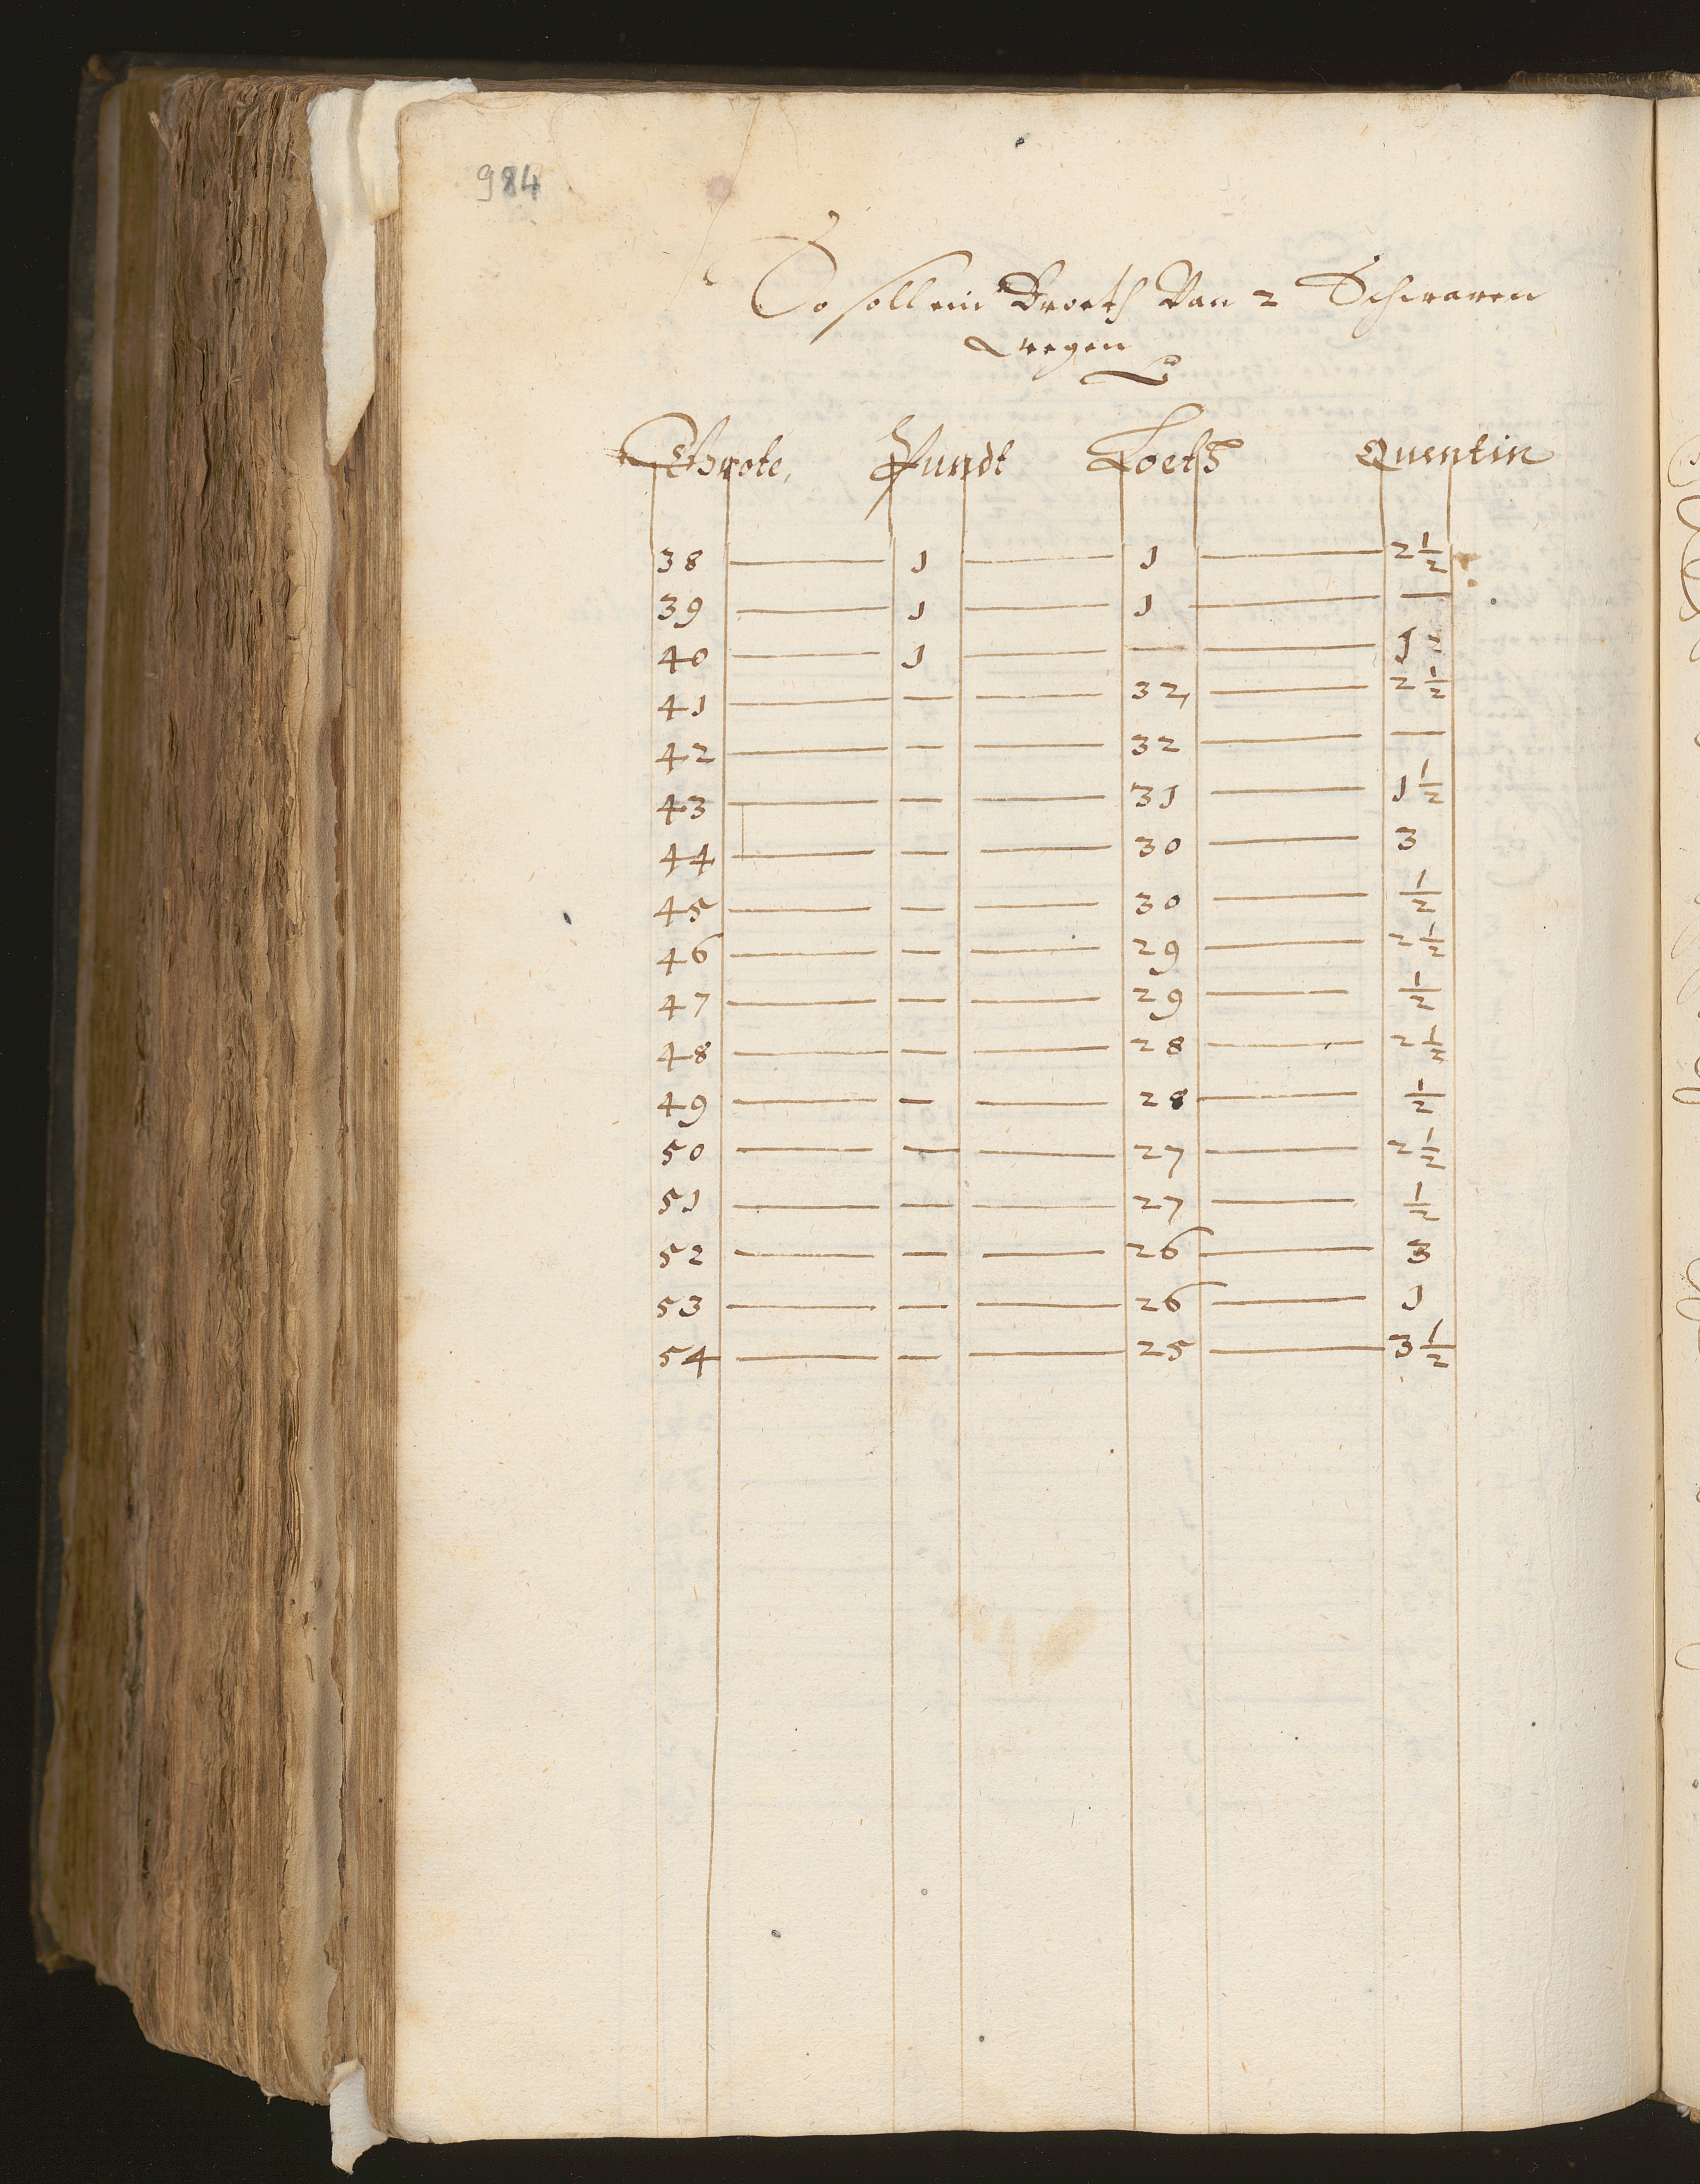 984
So soll ein Broeth Van 2 Schwaren
wegen
Grote, Pundt Loeth Quentin
38 — 1 — 1 — 2 1/2
39 — 1 — 1 — —
40 — 1 — — — 1 1/2
41 — — — 32, — 2 1/2
42 — — — 32 — —
43 — — — 31 — 1 1/2
44 — — — 30 — 3
45 — — — 30 — 1/2
46 — — — 29 — 2 1/2
47 — — — 29 — 1/2
48 — — — 28 — 2 1/2
49 — — — 28 — 1/2
50 — — — 27 — 2 1/2
51 — — — 27 — 1/2
52 — — — 26 — 3
53 — — — 26 — 1
54 — — — 25 — 3 1/2